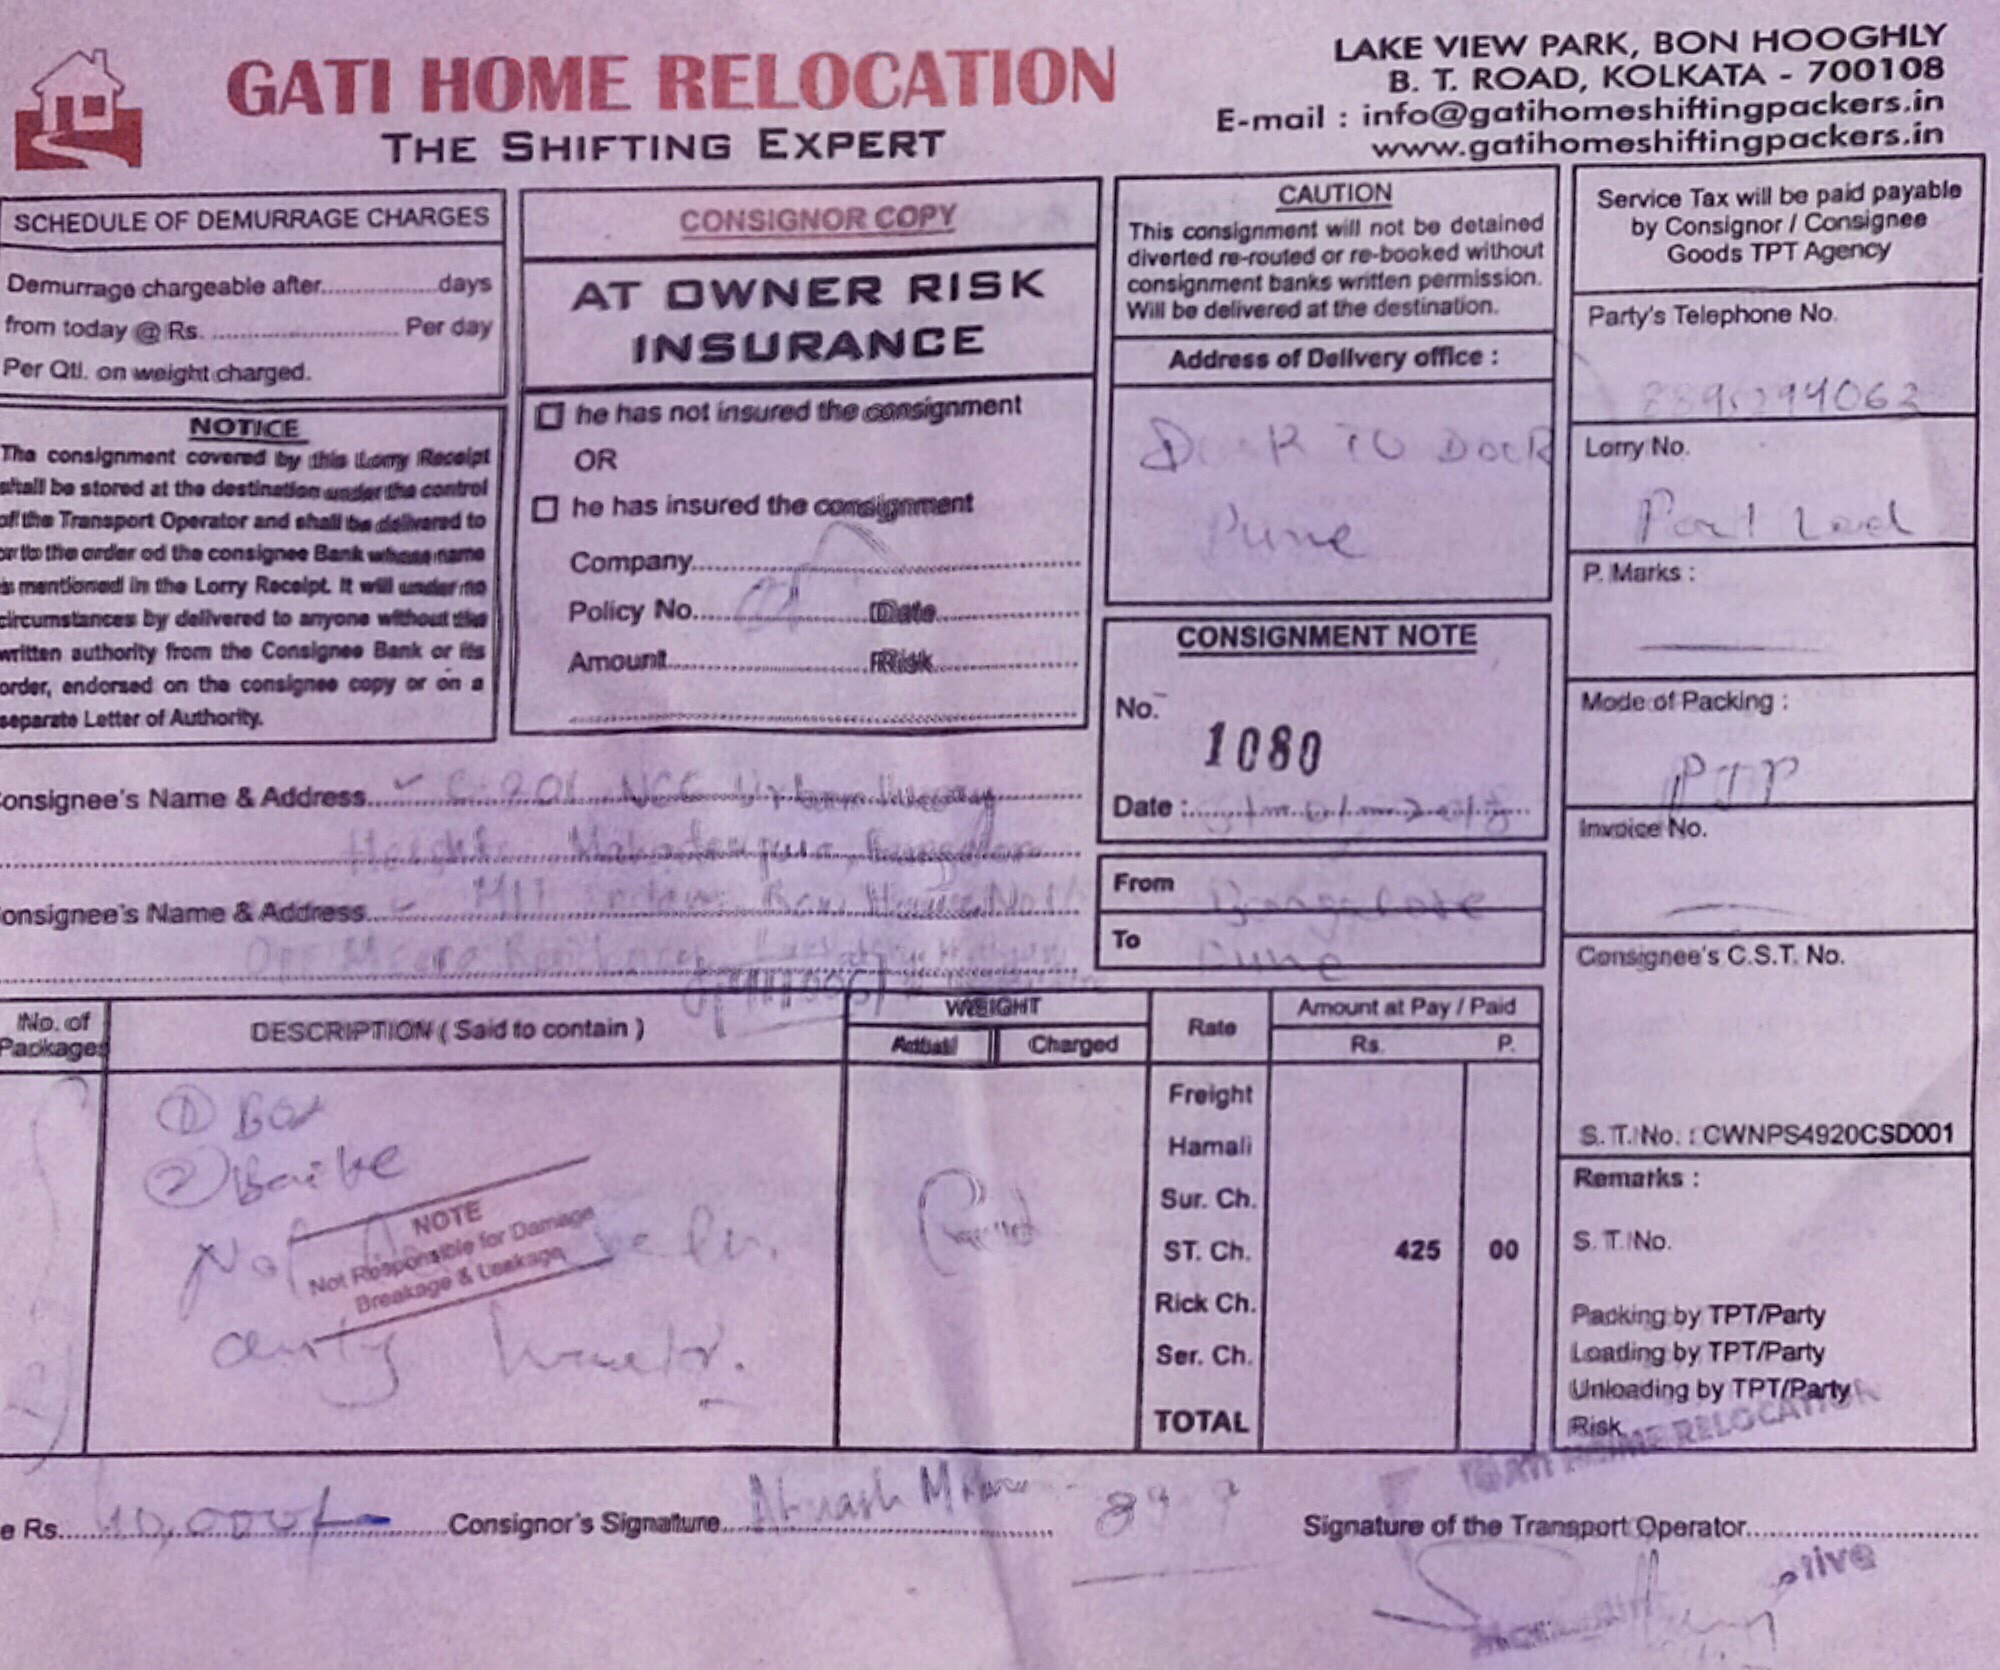 GATI HOME RELOCATION
THE SHIFTING EXPERT
LAKE VIEW PARK, BON HOOGHLY
B. T. ROAD, KOLKATA - 700108
E-mail : info@gatihomeshiftingpackers.in
www.gatihomeshiftingpackers.in
SCHEDULE OF DEMURRAGE CHARGES
Demurrage chargeable after.................days
from today @ Rs. ........................... Per day
Per Qtl. on weight charged.
NOTICE
The consignment covered by this Lorry Receipt
shall be stored at the destination under the control
of the Transport Operator and shall be delivered to
or to the order od the consignee Bank whose name
is mentioned in the Lorry Receipt. It will under no
circumstances by delivered to anyone without the
written authority from the Consignee Bank or its
order, endorsed on the consignee copy or on a
separate Letter of Authority.
CONSIGNOR COPY
AT OWNER RISK
INSURANCE
he has not insured the consignment
OR
he has insured the consignment
Company
Policy No. Date
Amount Risk
CAUTION
This consignment will not be detained
diverted re-routed or re-booked without
consignment banks written permission.
Will be delivered at the destination.
Address of Delivery office :
TO Dock
Pune
CONSIGNMENT NOTE
No. 1080
Date :
From Bangalore
To Pune
Service Tax will be paid payable
by Consignor / Consignee
Goods TPT Agency
Party's Telephone No.
Lorry No.
Part Load
P. Marks :
Mode of Packing :
PTP
Invoice No.
Consignee's C.S.T. No.
S. T. No. : CWNPS4920CSD001
Remarks :
S. T. No.
Packing by TPT/Party
Loading by TPT/Party
Unloading by TPT/Party
Risk
onsignee's Name & Address C-201 NCC Urban
Height Mahadevpura, Bangalore
onsignee's Name & Address House No
Opp
No. of Packages
DESCRIPTION ( Said to contain )
WEIGHT
Actual Charged
Rate
Amount at Pay / Paid
Rs. P.
① Box
② Baike
Not
NOTE
Not Responsible for Damage
Breakage & Leakage
Freight
Hamali
Sur. Ch.
ST. Ch. 425 00
Rick Ch.
Ser. Ch.
TOTAL
e Rs. 40,000/-
Consignor's Signature
Signature of the Transport Operator
GATI HOME RELOCATION